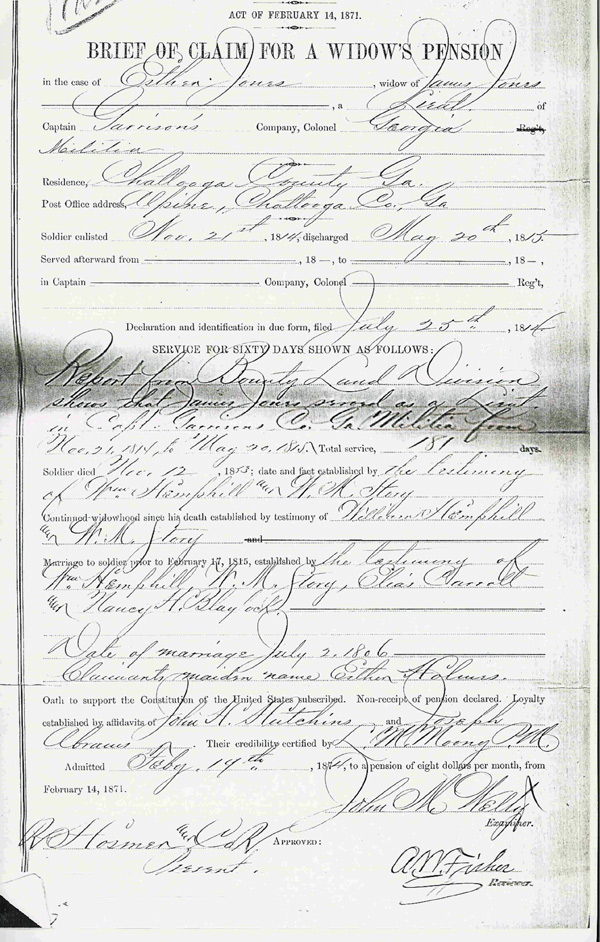 ACT OF FEBRUARY 14, 1871.
BRIEF OF CLAIM FOR A WIDOW'S PENSION
in the case of Esther Jones, widow of James Jones
, a Lieut. of
Captain Garrison's Company, Colonel Georgia Reg't,
Militia
Residence, Chattooga County Ga.
Post Office address, Alpine, Chattooga Co, Ga
Soldier enlisted Nov. 21st, 1814, discharged May 20th, 1815
Served afterward from , 18 —, to , 18 —,
in Captain Company, Colonel Reg't,
Declaration and identification in due form, filed July 25th, 187
SERVICE FOR SIXTY DAYS SHOWN AS FOLLOWS:
Report from Bounty Land Division
shows that James Jones served as a Lieut.
in Capt. Garrisons Co. Ga Militia from
Nov. 21, 1814, to May 20, 1815. Total service, 181 days.
Soldier died Nov. 12, 18 3; date and fact established by the testimony
of Wm Hemphill and W. M. Story
Continued widowhood since his death established by testimony of William Hemphill
and W. M. Story and
Marriage to soldier prior to February 17, 1815, established by the testimony of
Wm Hemphill, W. M. Story, Elias
and Nancy H. Blaylock.
Date of marriage July 2, 1806
Claimants maiden name Esther Holmes.
Oath to support the Constitution of the United States subscribed. Non-receipt of pension declared. Loyalty
established by affidavits of John H. Hutchins and Joseph
Abrams Their credibility certified by P.M.
Admitted Feby. 19th, 1874, to a pension of eight dollars per month, from
February 14, 1871.
John M
Examiner.
R Hosmer and Co
APPROVED:
Present.
A.W. Fisher
Reviewer.